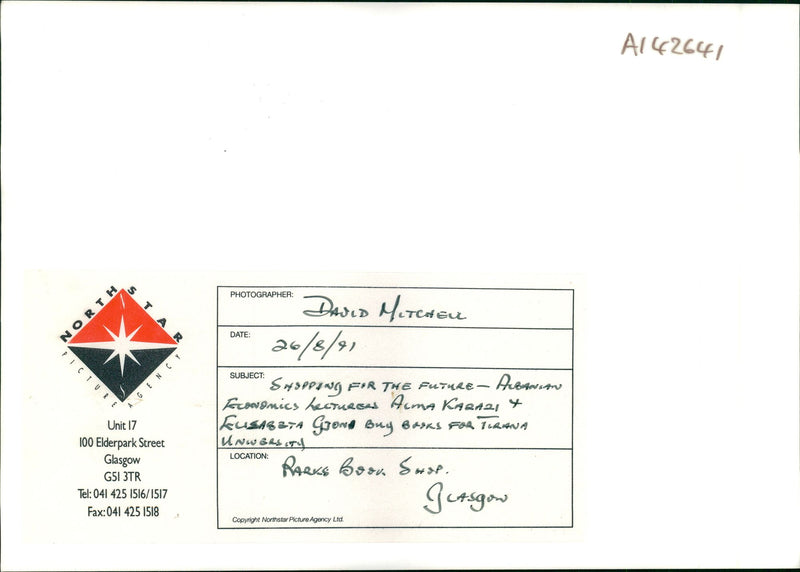 A142641
NORTHSTAR
PICTURE AGENCY
Unit 17
100 Elderpark Street
Glasgow
G51 3TR
Tel: 041 425 1516/1517
Fax: 041 425 1518
PHOTOGRAPHER: DAVID MITCHELL
DATE: 26/8/91
SUBJECT: SHOPPING FOR THE FUTURE — ALBANIAN
ECONOMICS LECTURERS ALMA &
ELISABETA GJONI BUY BOOKS FOR TIRANA
UNIVERSITY
LOCATION: BOOK SHOP.
GLASGOW
Copyright Northstar Picture Agency Ltd.